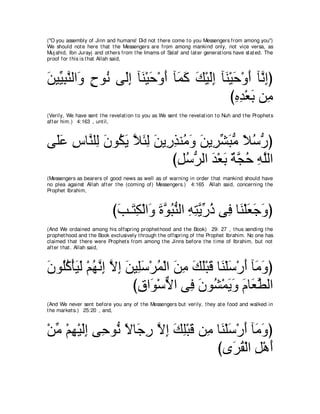 ("O you assembly of Jinn and humans! Did not there come to you Messengers from among you'')
We should note here that the Messengers are from among mankind only, not vice versa, as
Mujahid, Ibn Jurayj and others from the Imams of Salaf and later generations have stated. The
proof for this is that Allah said,
﴿إِنَّآ أَوْحَيْنَآ إِلَيْكَ كَمَآ أَوْحَيْنَآ إِلَى نُوحٍ وَالنَّبِيِّينَ
مِن بَعْدِهِ﴾
(Verily, We have sent the revelation to you as We sent the revelation to Nuh and the Prophets
after him.) 4:163 , until,
﴿رُّسُلاً مُّبَشِّرِينَ وَمُنذِرِينَ لِئَلاَّ يَكُونَ لِلنَّاسِ عَلَى
اللَّهِ حُجَّةٌ بَعْدَ الرُّسُلِ﴾
(Messengers as bearers of good news as well as of warning in order that mankind should have
no plea against Allah after the (coming of) Messengers.) 4:165 Allah said, concerning the
Prophet Ibrahim,
﴿وَجَعَلْنَا فِى ذُرِّيَّتِهِ النُّبُوَّةَ وَالْكِتَـبَ﴾
(And We ordained among his offspring prophethood and the Book) 29: 27 , thus sending the
prophethood and the Book exclusively through the offspring of the Prophet Ibrahim. No one has
claimed that there were Prophets from among the Jinns before the time of Ibrahim, but not
after that. Allah said,
﴿وَمَآ أَرْسَلْنَا قَبْلَكَ مِنَ الْمُرْسَلِينَ إِلاَّ إِنَّهُمْ لَيَأْكُلُونَ
الطَّعَامَ وَيَمْشُونَ فِى الاٌّسْوَاقِ﴾
(And We never sent before you any of the Messengers but verily, they ate food and walked in
the markets.) 25:20 , and,
﴿وَمَآ أَرْسَلْنَا مِن قَبْلِكَ إِلاَّ رِجَالاً نُّوحِى إِلَيْهِمْ مِّنْ
أَهْلِ الْقُرَى﴾